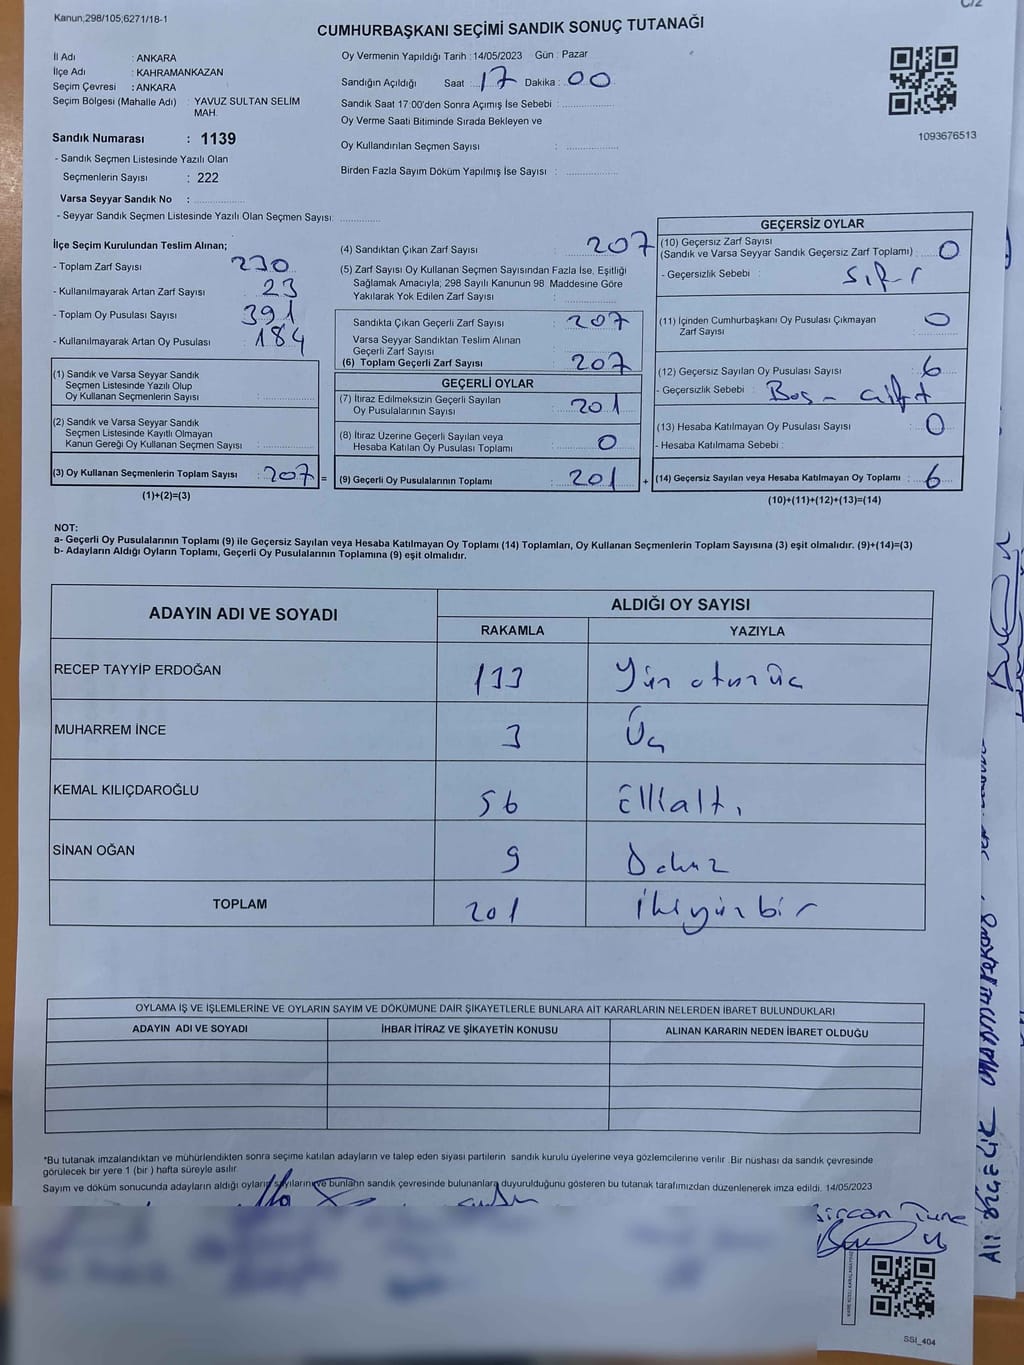 Kanun,298/105;6271/18-1
C/2
CUMHURBAŞKANI SEÇİMİ SANDIK SONUÇ TUTANAĞI
İl Adı : ANKARA
İlçe Adı : KAHRAMANKAZAN
Seçim Çevresi : ANKARA
Seçim Bölgesi (Mahalle Adı) : YAVUZ SULTAN SELİM
MAH.
Sandık Numarası : 1139
- Sandık Seçmen Listesinde Yazılı Olan
Seçmenlerin Sayısı : 222
Varsa Seyyar Sandık No :
- Seyyar Sandık Seçmen Listesinde Yazılı Olan Seçmen Sayısı:
Oy Vermenin Yapıldığı Tarih : 14/05/2023 Gün : Pazar
Sandığın Açıldığı Saat : 17 Dakika : 00
Sandık Saat 17:00'den Sonra Açımış İse Sebebi :
Oy Verme Saati Bitiminde Sırada Bekleyen ve
Oy Kullandırılan Seçmen Sayısı :
Birden Fazla Sayım Döküm Yapılmış İse Sayısı :
1093676513
İlçe Seçim Kurulundan Teslim Alınan;
- Toplam Zarf Sayısı 230
- Kullanılmayarak Artan Zarf Sayısı 23
- Toplam Oy Pusulası Sayısı 391
- Kullanılmayarak Artan Oy Pusulası 184
(1) Sandık ve Varsa Seyyar Sandık
Seçmen Listesinde Yazılı Olup
Oy Kullanan Seçmenlerin Sayısı :
(2) Sandık ve Varsa Seyyar Sandık
Seçmen Listesinde Kayıtlı Olmayan
Kanun Gereği Oy Kullanan Seçmen Sayısı :
(3) Oy Kullanan Seçmenlerin Toplam Sayısı : 207 =
(1)+(2)=(3)
(4) Sandıktan Çıkan Zarf Sayısı : 207
(5) Zarf Sayısı Oy Kullanan Seçmen Sayısından Fazla İse, Eşitliği
Sağlamak Amacıyla; 298 Sayılı Kanunun 98. Maddesine Göre
Yakılarak Yok Edilen Zarf Sayısı :
Sandıkta Çıkan Geçerli Zarf Sayısı : 207
Varsa Seyyar Sandıktan Teslim Alınan
Geçerli Zarf Sayısı :
(6) Toplam Geçerli Zarf Sayısı : 207
GEÇERLİ OYLAR
(7) İtiraz Edilmeksizin Geçerli Sayılan
Oy Pusulalarının Sayısı : 201
(8) İtiraz Üzerine Geçerli Sayılan veya
Hesaba Katılan Oy Pusulası Toplamı : 0
(9) Geçerli Oy Pusulalarının Toplamı : 201 +
GEÇERSİZ OYLAR
(10) Geçersiz Zarf Sayısı
(Sandık ve Varsa Seyyar Sandık Geçersiz Zarf Toplamı) : 0
- Geçersizlik Sebebi : Sıfır
(11) İçinden Cumhurbaşkanı Oy Pusulası Çıkmayan
Zarf Sayısı : 0
(12) Geçersiz Sayılan Oy Pusulası Sayısı : 6
- Geçersizlik Sebebi : Boş - çift
(13) Hesaba Katılmayan Oy Pusulası Sayısı : 0
- Hesaba Katılmama Sebebi :
(14) Geçersiz Sayılan veya Hesaba Katılmayan Oy Toplamı : 6
(10)+(11)+(12)+(13)=(14)
NOT:
a- Geçerli Oy Pusulalarının Toplamı (9) ile Geçersiz Sayılan veya Hesaba Katılmayan Oy Toplamı (14) Toplamları, Oy Kullanan Seçmenlerin Toplam Sayısına (3) eşit olmalıdır. (9)+(14)=(3)
b- Adayların Aldığı Oyların Toplamı, Geçerli Oy Pusulalarının Toplamına (9) eşit olmalıdır.
ADAYIN ADI VE SOYADI ALDIĞI OY SAYISI
RAKAMLA YAZIYLA
RECEP TAYYİP ERDOĞAN 133 Yüz otuzüç
MUHARREM İNCE 3 Üç
KEMAL KILIÇDAROĞLU 56 Ellialtı
SİNAN OĞAN 9 Dokuz
TOPLAM 201 İkiyüzbir
OYLAMA İŞ VE İŞLEMLERİNE VE OYLARIN SAYIM VE DÖKÜMÜNE DAİR ŞİKAYETLERLE BUNLARA AİT KARARLARIN NELERDEN İBARET BULUNDUKLARI
ADAYIN ADI VE SOYADI İHBAR İTİRAZ VE ŞİKAYETİN KONUSU ALINAN KARARIN NEDEN İBARET OLDUĞU
*Bu tutanak imzalandıktan ve mühürlendikten sonra seçime katılan adayların ve talep eden siyasi partilerin sandık kurulu üyelerine veya gözlemcilerine verilir .Bir nüshası da sandık çevresinde
görülecek bir yere 1 (bir ) hafta süreyle asılır.
Sayım ve döküm sonucunda adayların aldığı oyların sayılarını ve bunların sandık çevresinde bulunanlara duyurulduğunu gösteren bu tutanak tarafımızdan düzenlenerek imza edildi. 14/05/2023
SSİ_404